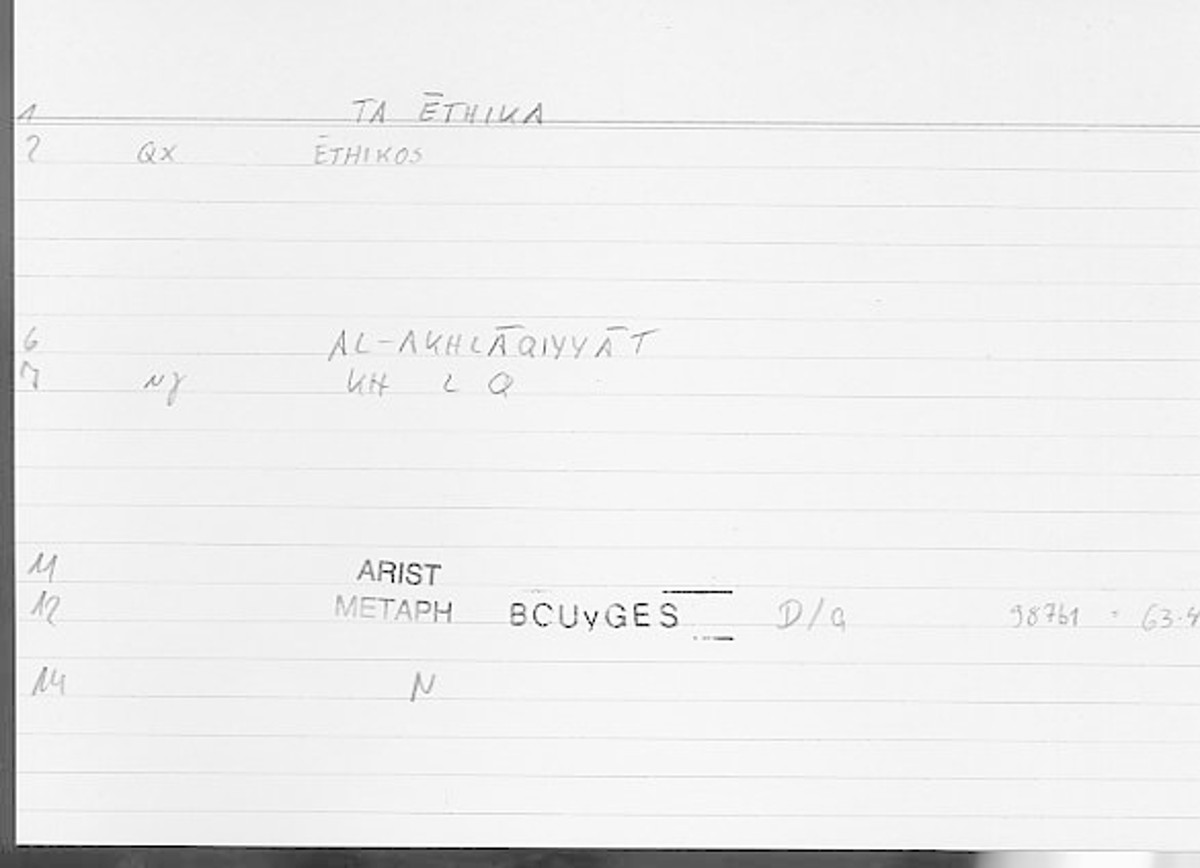 1 TA ĒTHIKA
2 QX ĒTHIKOS
6 AL-AKHLĀQIYYĀT
7 KH L Q
11 ARIST
12 METAPH BCUyGES D/a 987b1 = 63.4
14 N